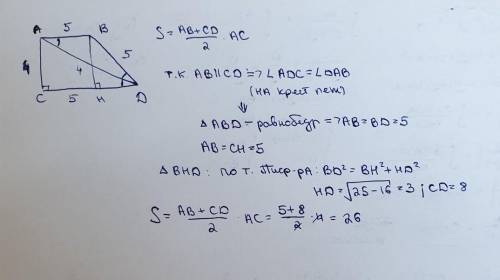 A 5 B
4 4 5
C 5 H D
S = AB+CD/2 AC
т.к AB||CD => ∠ADC = ∠DAB
(на крест леж)
⇓
△ABD - равнобедр => AB = BD = 5
AB = CH = 5
△BHD: по т. Пифг-ра: BD² = BH² + HD²
HD = √25-16 = 3 ; CD = 8
S = AB+CD/2 AC = 5+8/2 · 4 = 26